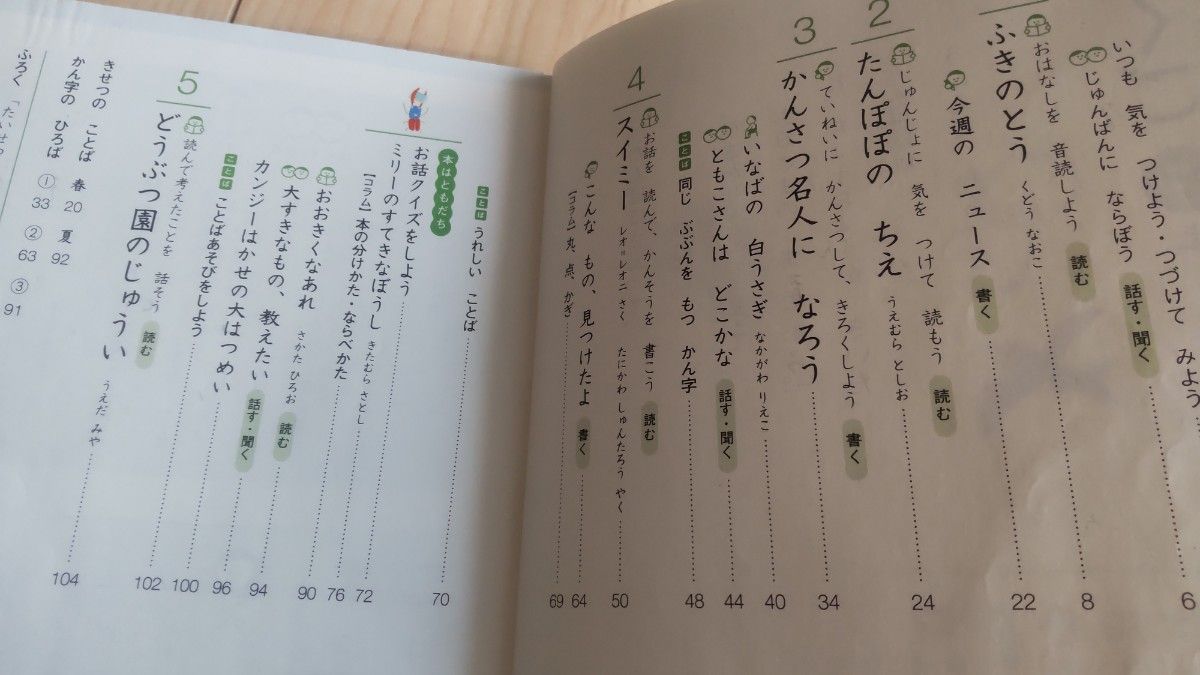 いつも 気を つけよう・つづけて みよう
6
じゅんばんに ならぼう 話す・聞く
8
おはなしを 音読しよう 読む
ふきのとう くどう なおこ
今週の ニュース 書く
22
2
じゅんじょに 気を つけて 読もう 読む
たんぽぽの ちえ うえむら としお
24
3
ていねいに かんさつして、きろくしよう 書く
かんさつ名人に なろう
34
いなばの 白うさぎ なかがわ りえこ
40
ともこさんは どこかな 話す・聞く
44
ことば 同じ ぶぶんを もつ かん字
48
4
お話を 読んで、かんそうを 書こう 読む
スイミー レオ=レオニ さく たにかわ しゅんたろう やく
50
こんな もの、見つけたよ 書く
64
【コラム】丸、点、かぎ
69
ことば うれしい ことば
70
本はともだち
お話クイズをしよう
ミリーのすてきなぼうし きたむら さとし
72
【コラム】本の分けかた・ならべかた
76
おおきくなあれ さかた ひろお 読む
90
大すきなもの、教えたい 話す・聞く
94
カンジーはかせの大はつめい
96
ことば ことばあそびをしよう
100
102
5
読んで考えたことを 話そう 読む
どうぶつ園のじゅうい うえだ みや
104
きせつの ことば 春 20 夏 92
かん字の ひろば ① 33 ② 63 ③ 91
ふろく 「たいせつ